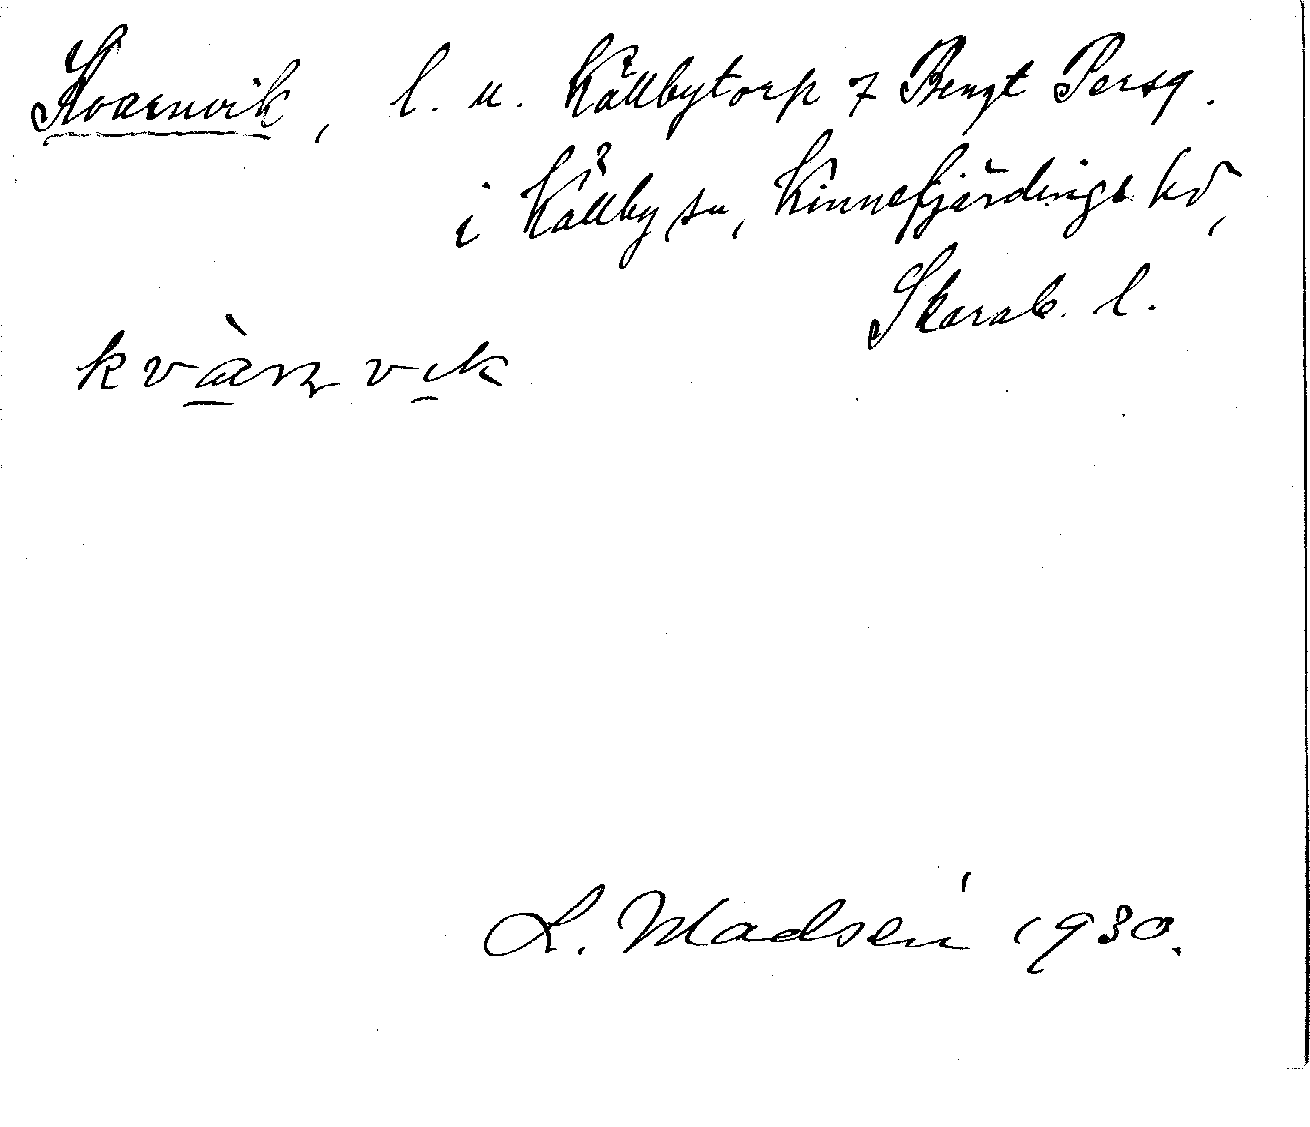 Kvarnvik, l. u. Källbytorp 7 Bengt Persg.
i Källby sn, Kinnefjärdings hd,
Skarab. l.
kvànvik
L. Madsén 1930.